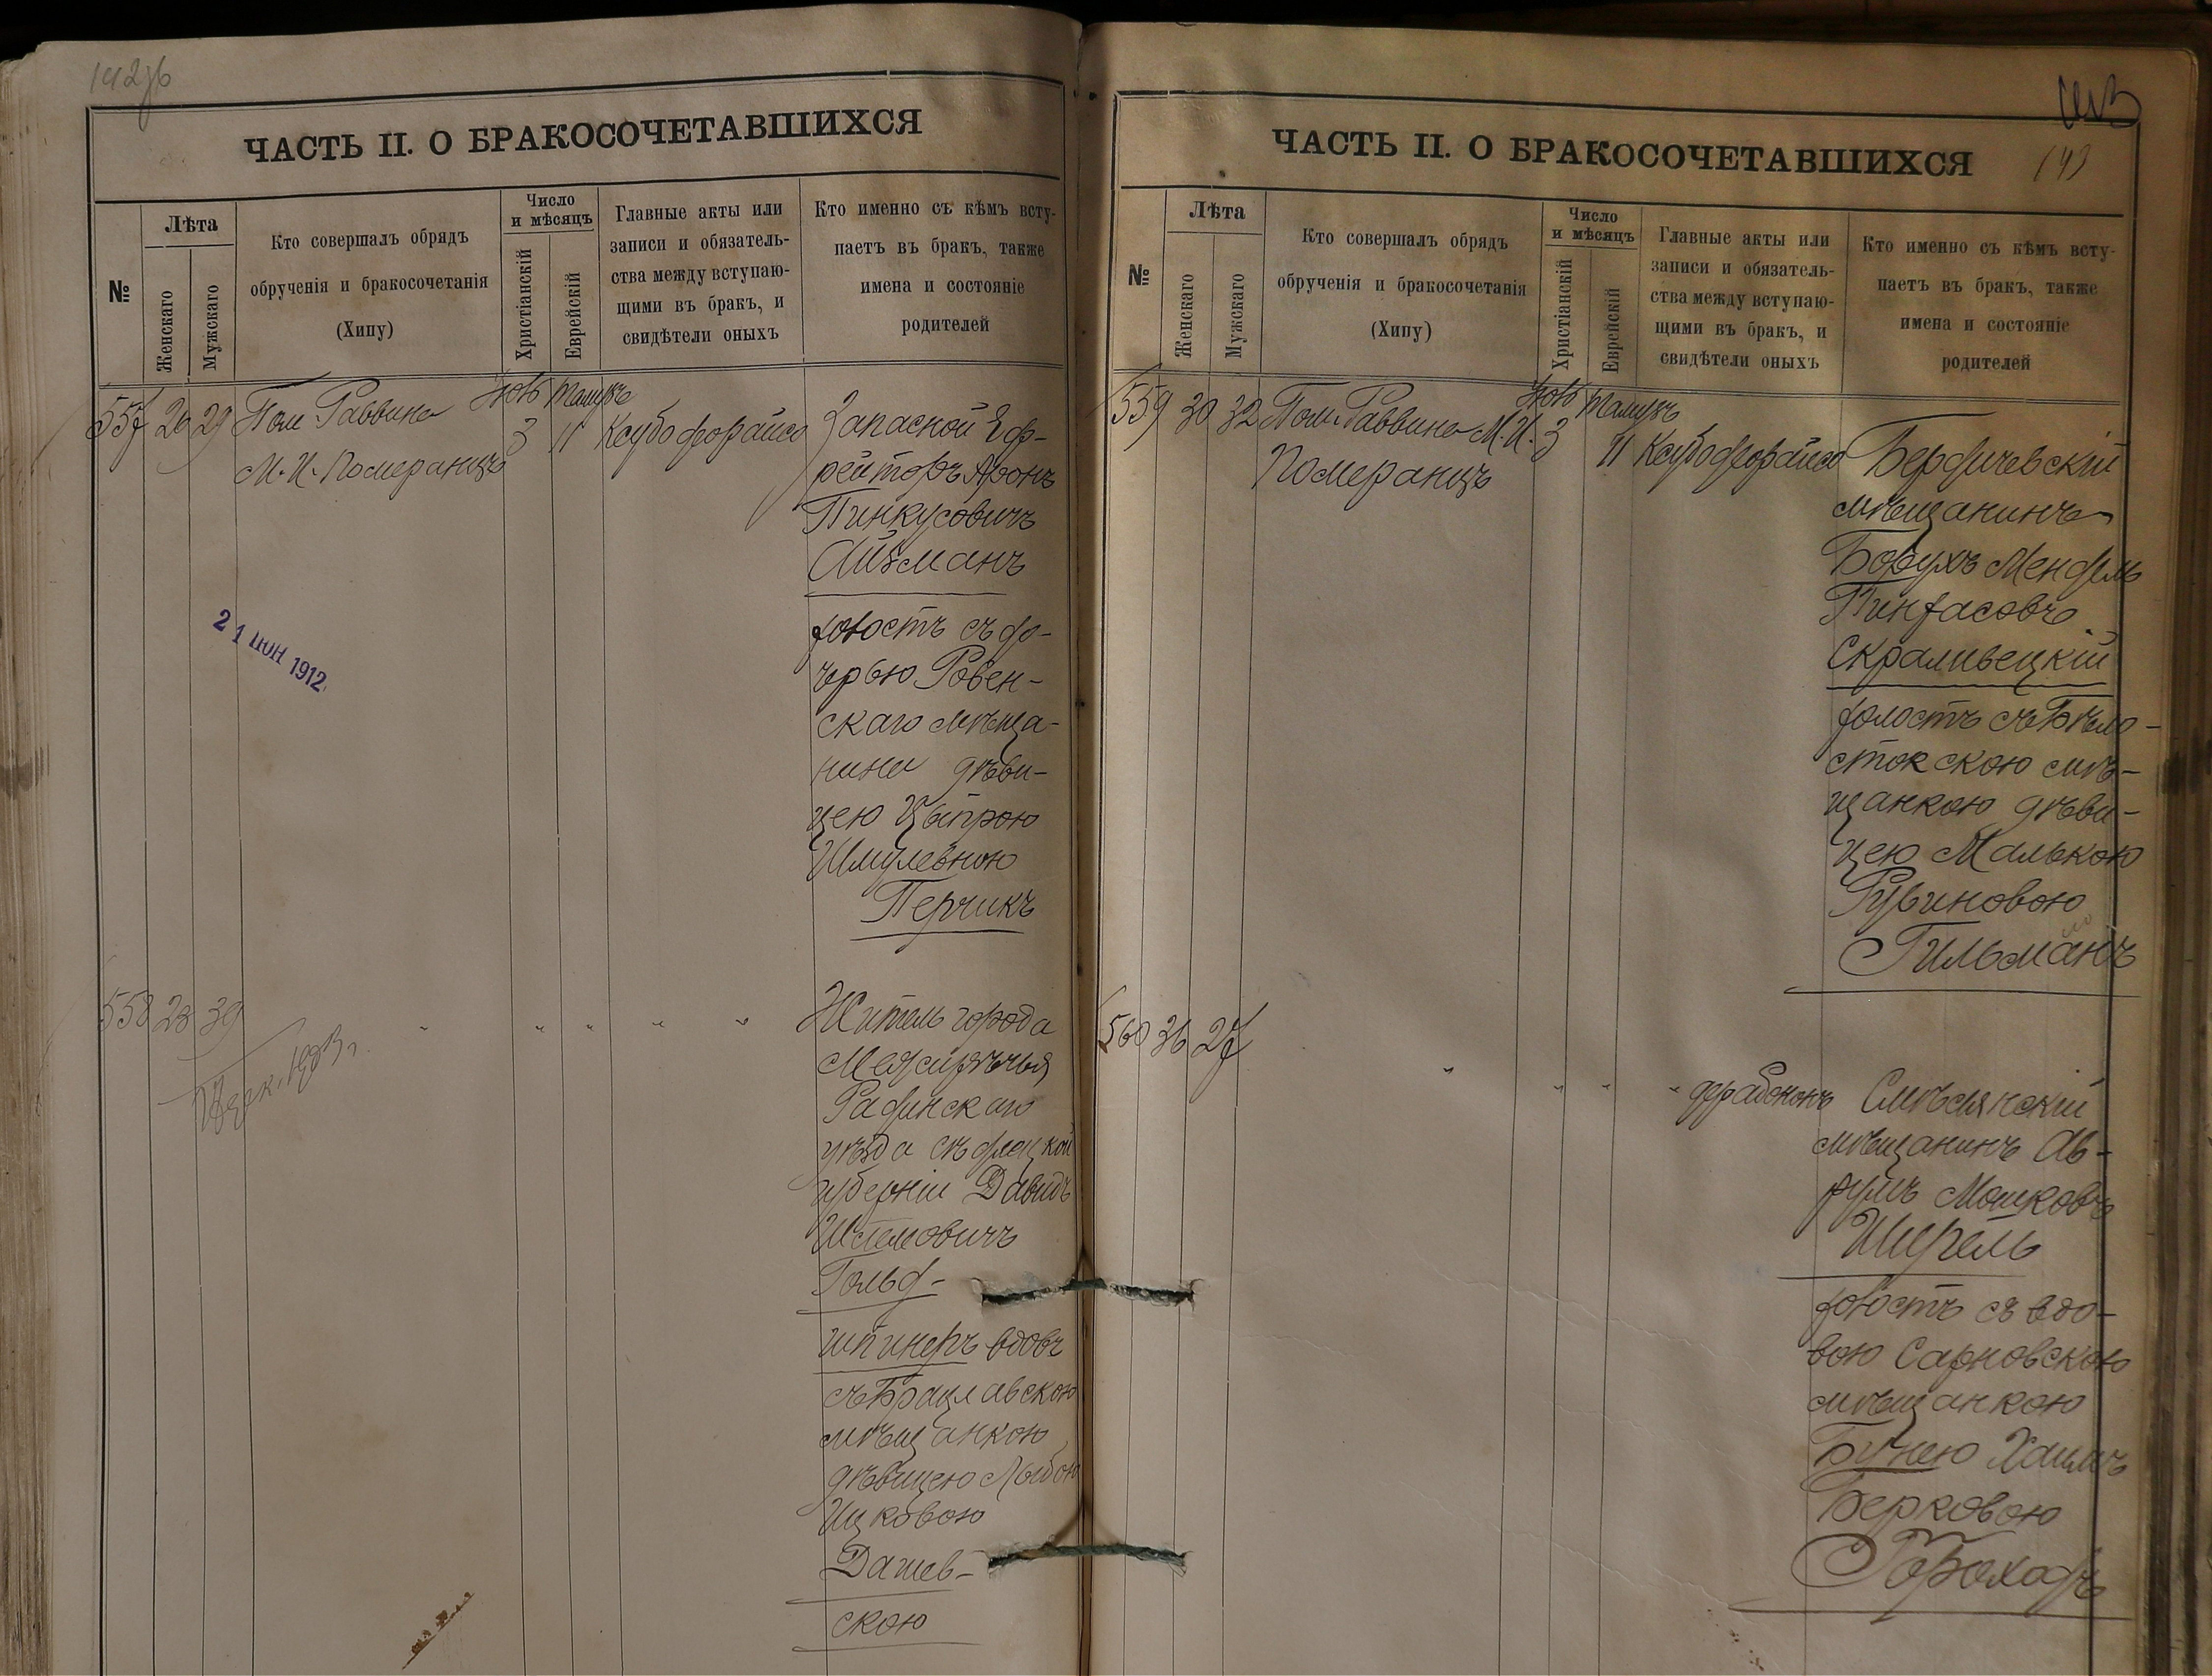 142об
ЧАСТЬ II. О БРАКОСОЧЕТАВШИХСЯ
№
Лѣта
Женскаго
Мужскаго
Кто совершалъ обрядъ
обрученія и бракосочетанія
(Хипу)
Число
и мѣсяцъ
Христіанскій
Еврейскій
Главные акты или
записи и обязатель-
ства между вступаю-
щими въ бракъ, и
свидѣтели оныхъ
Кто именно съ кѣмъ всту-
паетъ въ бракъ, также
имена и состояніе
родителей
557 26 29 Пом. Раввина
М. И. Померанцъ
Тамузъ
3 11
Запасной Еф-
рейторъ Аронъ
Пинкусовичъ
Айзманъ
холостъ съ до-
черью Ровен-
скаго мѣща-
нина дѣви-
цею Цыпрою
Шмулевною
Перчикъ
21 1912
558 23 39
Житель города
Межирѣчья
Радинскаго
уѣзда Сѣдлецкой
губерніи Давидъ
Гольд-
шпинеръ вдовъ
съ Брацлавскою
мѣщанкою
дѣвицею
Ицковою
Дашев-
скою
143
ЧАСТЬ II. О БРАКОСОЧЕТАВШИХСЯ
№
Лѣта
Женскаго
Мужскаго
Кто совершалъ обрядъ
обрученія и бракосочетанія
(Хипу)
Число
и мѣсяцъ
Христіанскій
Еврейскій
Главные акты или
записи и обязатель-
ства между вступаю-
щими въ бракъ, и
свидѣтели оныхъ
Кто именно съ кѣмъ всту-
паетъ въ бракъ, также
имена и состояніе
родителей
559 30 32 Пом. Раввина М. И.
Померанцъ
Тамузъ
3 11
Бердичевскій
мѣщанинъ
Борухъ Мендель
Пинхасовъ
Скраливецкій
холостъ съ Бѣло-
стокскою мѣ-
щанкою дѣви-
цею Малькою
Рувиновою
Гильманъ
560 36 27
Смѣлянскій
мѣщанинъ Ав-
румъ Мошковъ
холостъ съ вдо-
вою Сарновскою
мѣщанкою
Бунею Хаимъ
Берковою